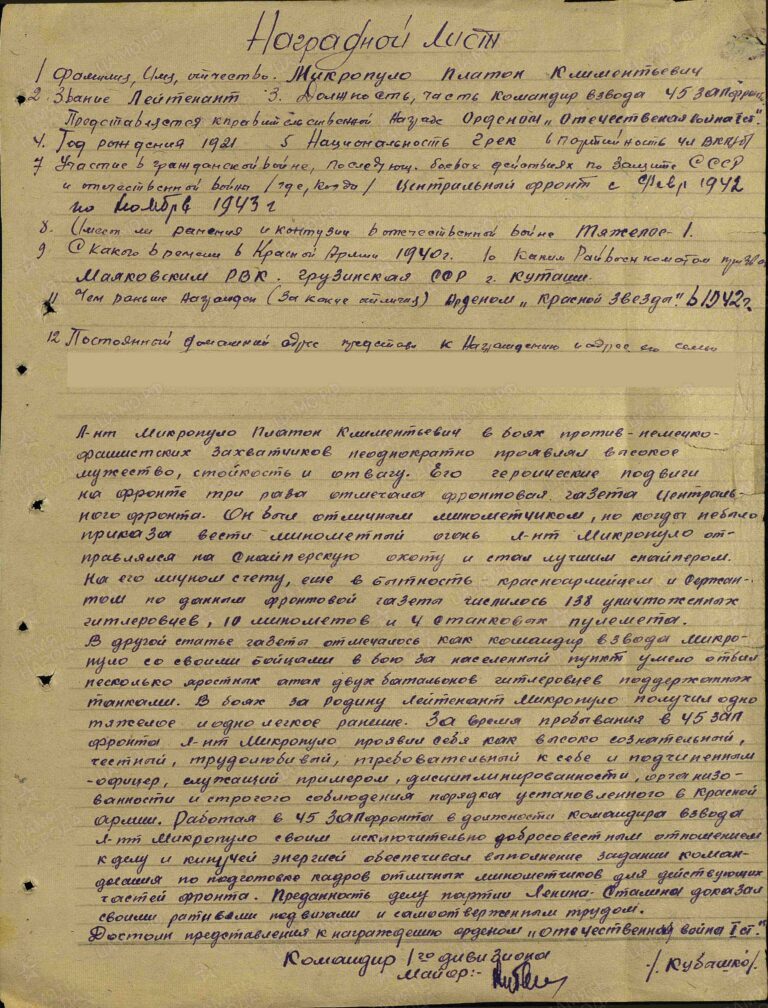 Наградной лист
1 Фамилия, Имя, отчество. Микропуло Платон Климентьевич
2 Звание Лейтенант 3. Должность, часть Командир взвода 45 ЗАП фронта
Представляется к правительственной награде Орденом „Отечественная война I ст."
4. Год рождения 1921 5 Национальность Грек 6 Партийность чл ВКП(б)
7 Участие в гражданской войне, последующ. боевых действиях по защите СССР
и отечественной войне /где, когда/ Центральный фронт с Февр 1942
по Ноябрь 1943 г
8. Имеет ли ранения и контузии в отечественной войне Тяжелое-1.
9 С какого времени в Красной Армии 1940 г. 10 Каким Райвоенкоматом призван
Маяковским РВК. Грузинская ССР г. Кутаиси
11 Чем раньше награжден (за какие отличия) Орденом „Красной Звезды" в 1942 г.
12 Постоянный домашний адрес представл к Награждению и адрес его семьи
Л-нт Микропуло Платон Климентьевич в боях против-немецко-
фашистских захватчиков неоднократно проявлял высокое
мужество, стойкость и отвагу. Его героические подвиги
на фронте три раза отмечала фронтовая газета Централь-
ного фронта. Он был отличным минометчиком, но когда небыло
приказа вести минометный огонь л-нт Микропуло от-
правлялся на снайперскую охоту и стал лучшим снайпером.
На его личном счету, еще в бытность красноармейцем и сержан-
том по данным фронтовой газеты числилось 138 уничтоженных
гитлеровцев, 10 минометов и 4 станковых пулемета.
В другой статье газеты отмечалось как командир взвода Микро-
пуло со своими бойцами в бою за населенный пункт умело отбил
несколько яростных атак двух батальонов гитлеровцев поддержанных
танками. В боях за Родину лейтенант Микропуло получил одно
тяжелое и одно легкое ранение. За время пребывания в 45 ЗАП
фронта л-нт Микропуло проявил себя как высоко сознательный,
честный, трудолюбивый, требовательный к себе и подчиненным
-офицер, служащий примером, дисциплинированности, организо-
ванности и строгого соблюдения порядка установленного в Красной
армии. Работая в 45 ЗАП фронта в должности командира взвода
л-нт Микропуло своим исключительно добросовестным отношением
к делу и кипучей энергией обеспечивал выполнение задании коман-
дования по подготовке кадров отличных минометчиков для действующих
частей фронта. Преданность делу партии Ленина-Сталина доказал
своими ратными подвигами и самоотверженным трудом.
Достоин представления к награждению орденом „Отечественная война I ст."
Командир 1го дивизиона
Майор:- /Кубашко/.